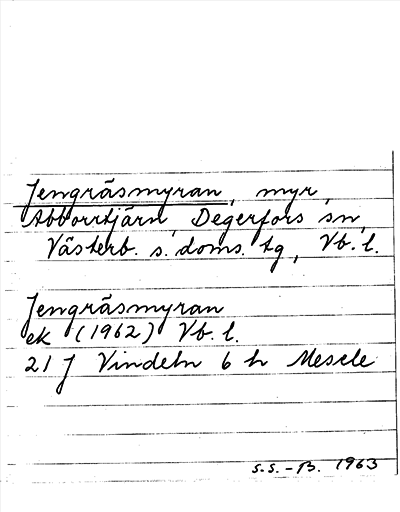 Jengräsmyran, myr,
Abborrtjärn, Degerfors sn,
Västerb. s. doms. tg, Vb. l.
Jengräsmyran
ek (1962) Vb. l.
21 J Vindeln 6 h Mesele
S.S. - B. 1963